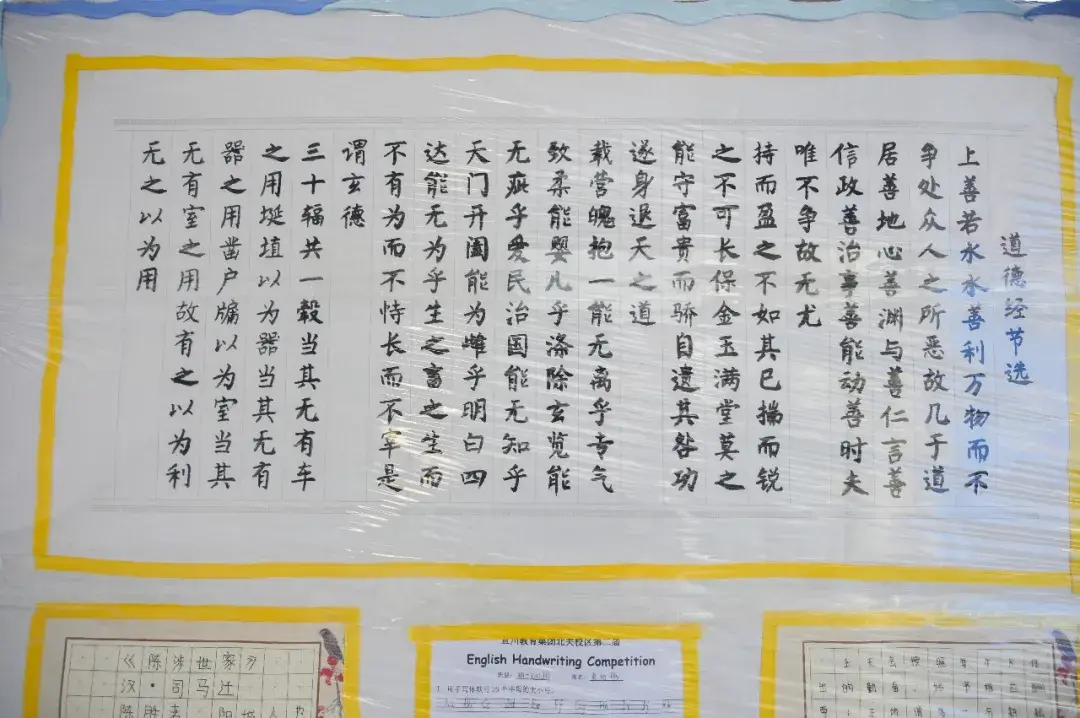 道德经节选
上善若水水善利万物而不
争处众人之所恶故几于道
居善地心善渊与善仁言善
信政善治事善能动善时夫
唯不争故无尤
持而盈之不如其已揣而锐
之不可长保金玉满堂莫之
能守富贵而骄自遗其咎功
遂身退天之道
载营魄抱一能无离乎专气
致柔能婴儿乎涤除玄览能
无疵乎爱民治国能无知乎
天门开阖能为雌乎明白四
达能无为乎生之畜之生而
不有为而不恃长而不宰是
谓玄德
三十辐共一毂当其无有车
之用埏埴以为器当其无有
器之用凿户牖以为室当其
无有室之用故有之以为利
无之以为用
《陈涉世家》
汉·司马迁
宜川教育集团北夫校区第二届
English Handwriting Competition